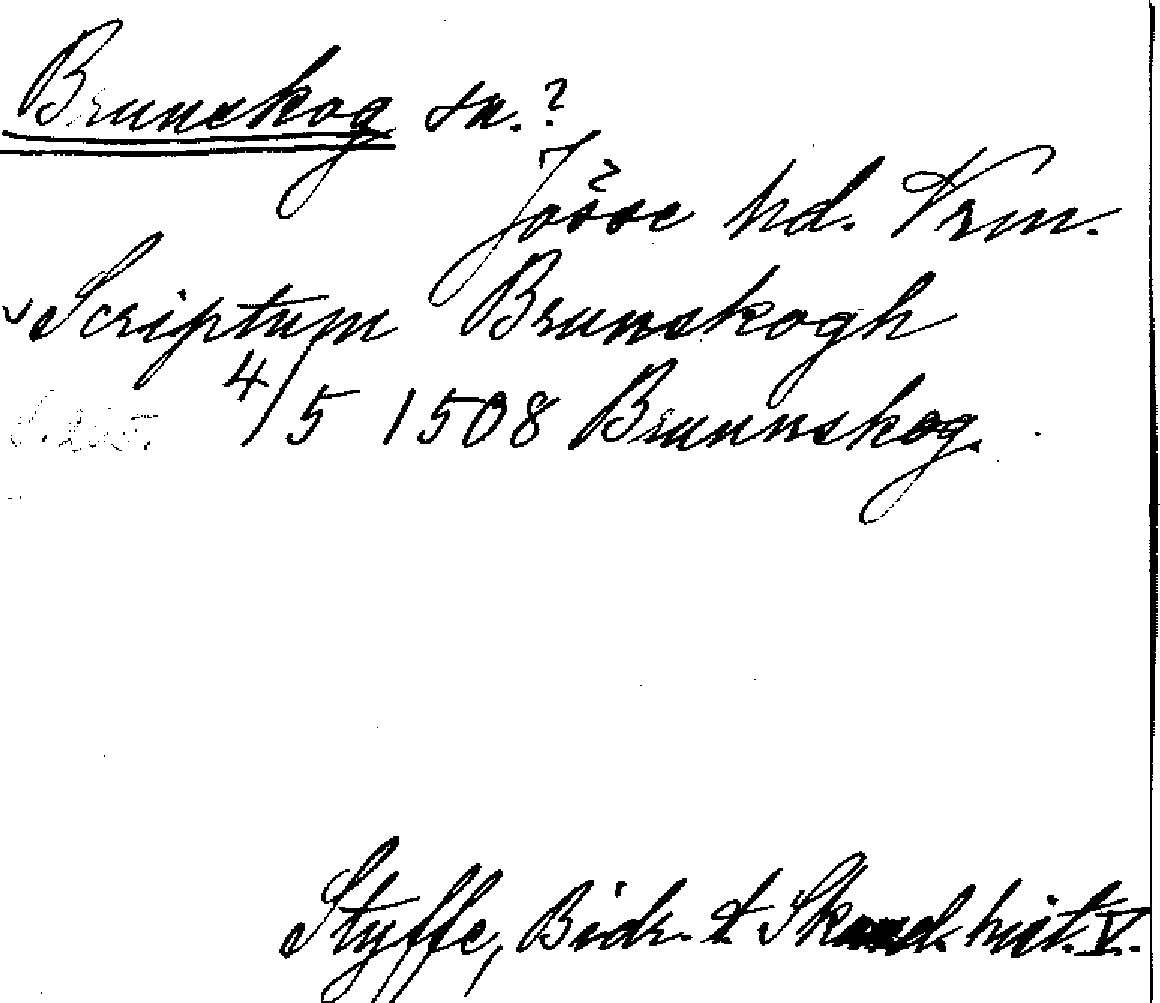 Brunskog sn.?
Jösse hd. Vrm.
Scriptum Brunskogh
4/5 1508 Brunnskog.
Styffe, Bidr. t Skand. hist. V.